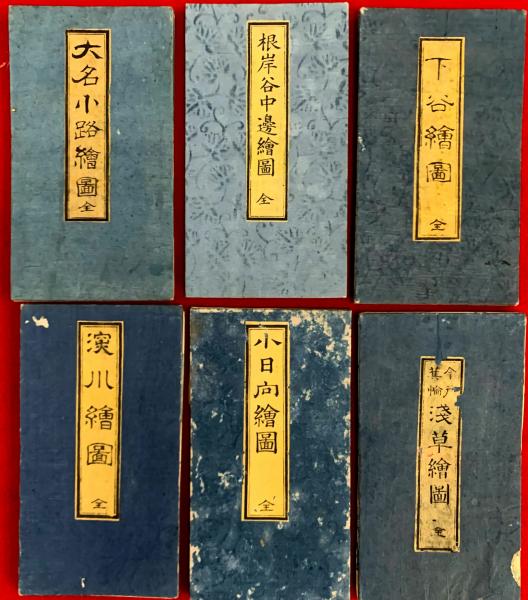 大名小路繪圖
全
根岸谷中邊繪圖
全
下谷繪圖
全
深川繪圖
全
小日向繪圖
全
今戸
箕輪
淺草繪圖
全